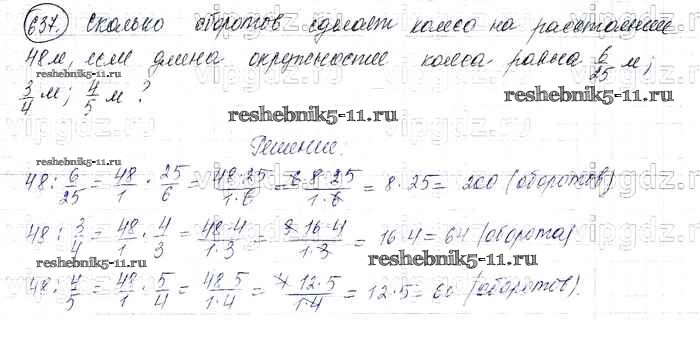 637. Сколько оборотов сделает колесо на расстоянии
48 м, если длина окружности колеса равна 6/25 м;
3/4 м; 4/5 м?
reshebnik5-11.ru
reshebnik5-11.ru
reshebnik5-11.ru
Решение:
48 : 6/25 = 48/1 · 25/6 = 48·25/1·6 = 6·8·25/1·6 = 8·25 = 200 (оборотов)
48 : 3/4 = 48/1 · 4/3 = 48·4/1·3 = 3·16·4/1·3 = 16·4 = 64 (оборота)
reshebnik5-11.ru
reshebnik5-11.ru
48 : 4/5 = 48/1 · 5/4 = 48·5/1·4 = 4·12·5/1·4 = 12·5 = 60 (оборотов).